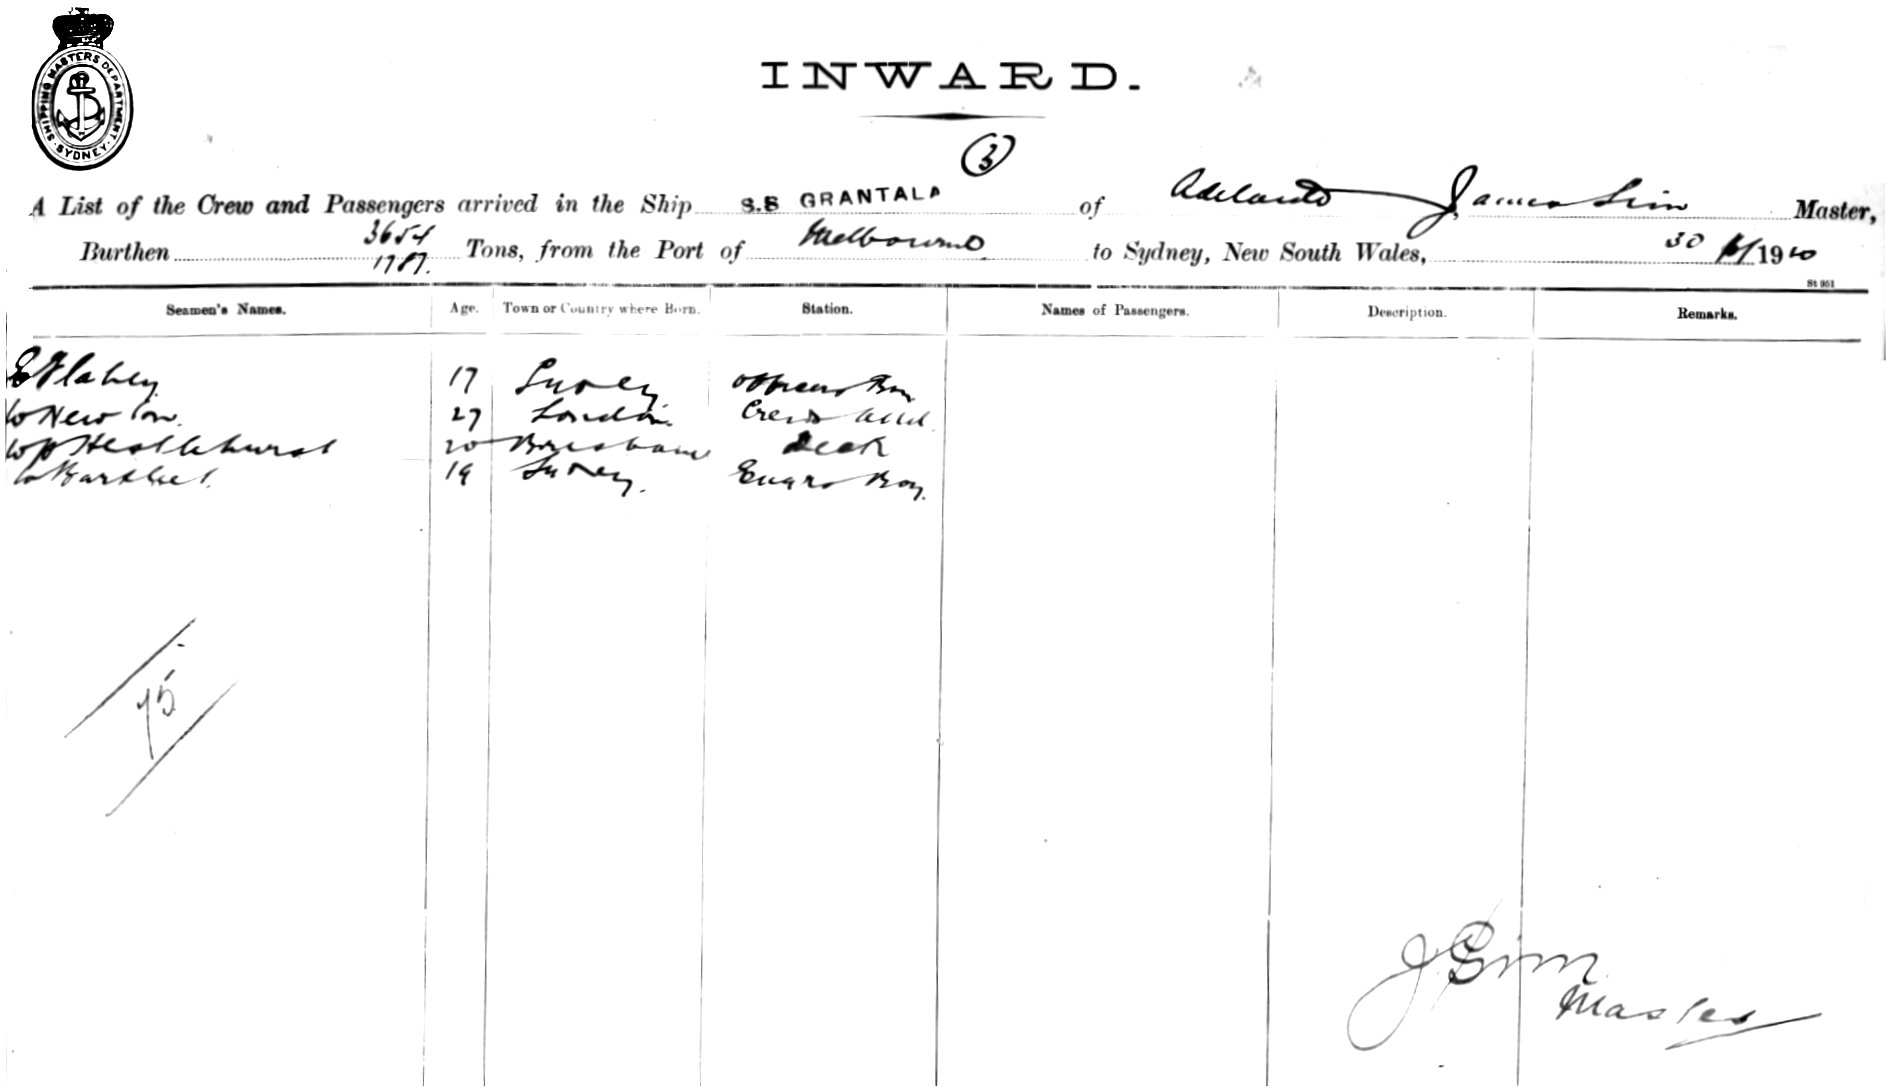 SHIPPING MASTERS DEPARTMENT. SYDNEY.
INWARD.
3
A List of the Crew and Passengers arrived in the Ship S.S GRANTALA of Adelaide James Sim Master,
Burthen 3654 1787. Tons, from the Port of Melbourne to Sydney, New South Wales, 30 1910
St 951
Seamen's Names. Age. Town or Country where Born. Station. Names of Passengers. Description. Remarks.
E Flahey 17 Sydney Officers Boy
W Newton. 27 London. Crews attd.
W Heslehurst 20 Brisbane Deck
19 Sydney. Engrs Boy.
75
J Sim
Master